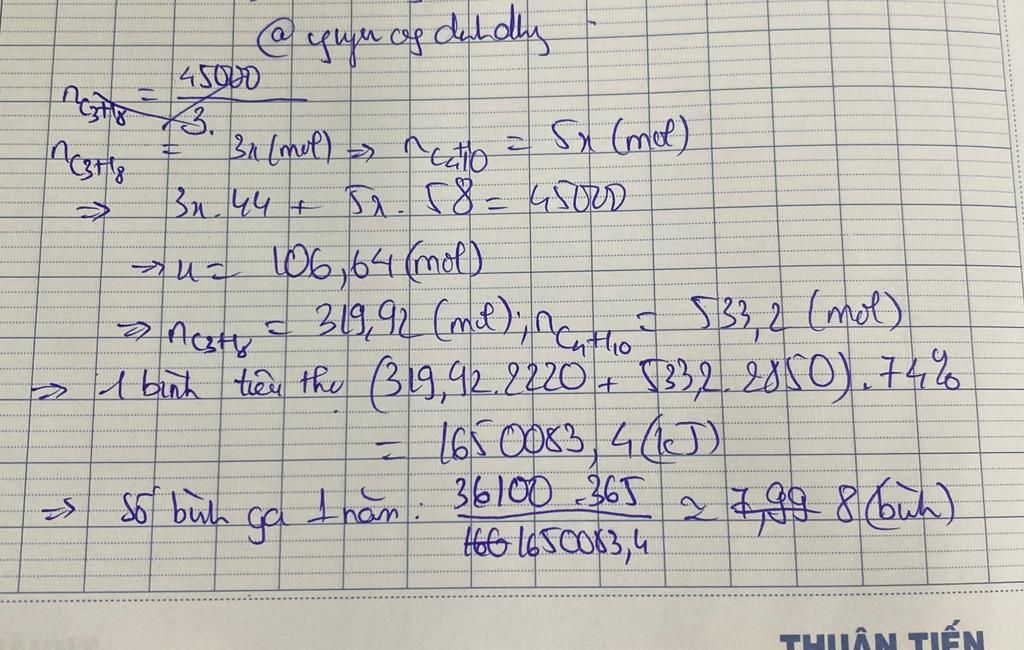 n_C3H8 = 45000 / 3.
n_C3H8 = 3x (mol) => n_C4H10 = 5x (mol)
=> 3x.44 + 5x.58 = 45000
=> x = 106,64 (mol)
=> n_C3H8 = 319,92 (mol); n_C4H10 = 533,2 (mol)
=> 1 bình tiêu thụ (319,92.2220 + 533,2.2850).74%
= 1650083,4 (kJ)
=> Số bình ga 1 năm: 36100.365 / 1650083,4 ≈ 7,99 8 (bình)
THUẬN TIẾN